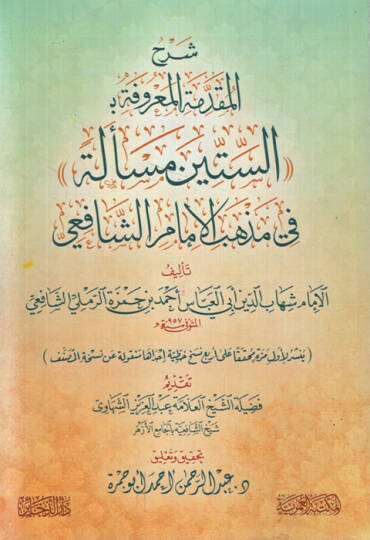 شرح
المقدمة المعروفة بـ
«الستين مسألة»
في مذهب الإمام الشافعي
تأليف
الإمام شهاب الدين أبي العباس أحمد بن حمزة الرملي الشافعي
المتوفى سنة ٩٥٧ هـ
(ينشر لأول مرة محققا على أربع نسخ خطية إحداها منقولة عن نسخة المصنف)
تقديم
فضيلة الشيخ العلامة عبد العزيز الشهاوي
شيخ الشافعية بالجامع الأزهر
تحقيق وتعليق
د. عبد الرحمن أحمد أبو جمرة
المكتبة العمرية
دار الذخائر